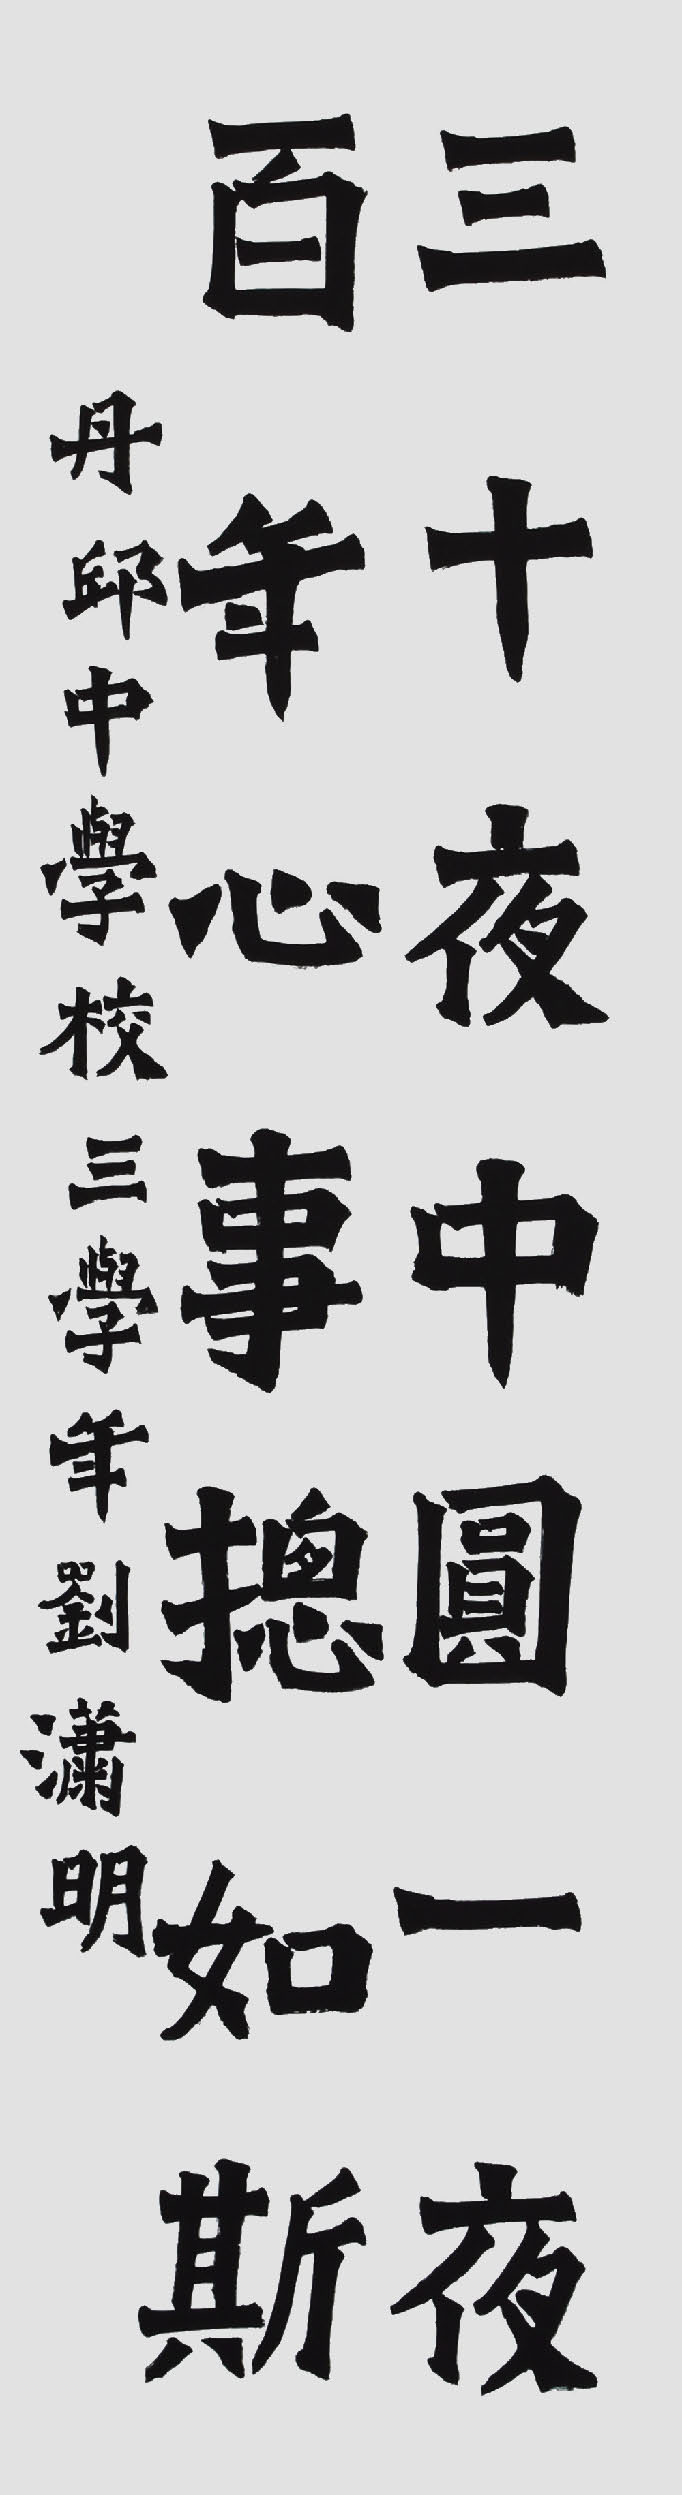 三十夜中圓一夜
百年心事摠如斯
丹邱中學校三學年劉瀟明